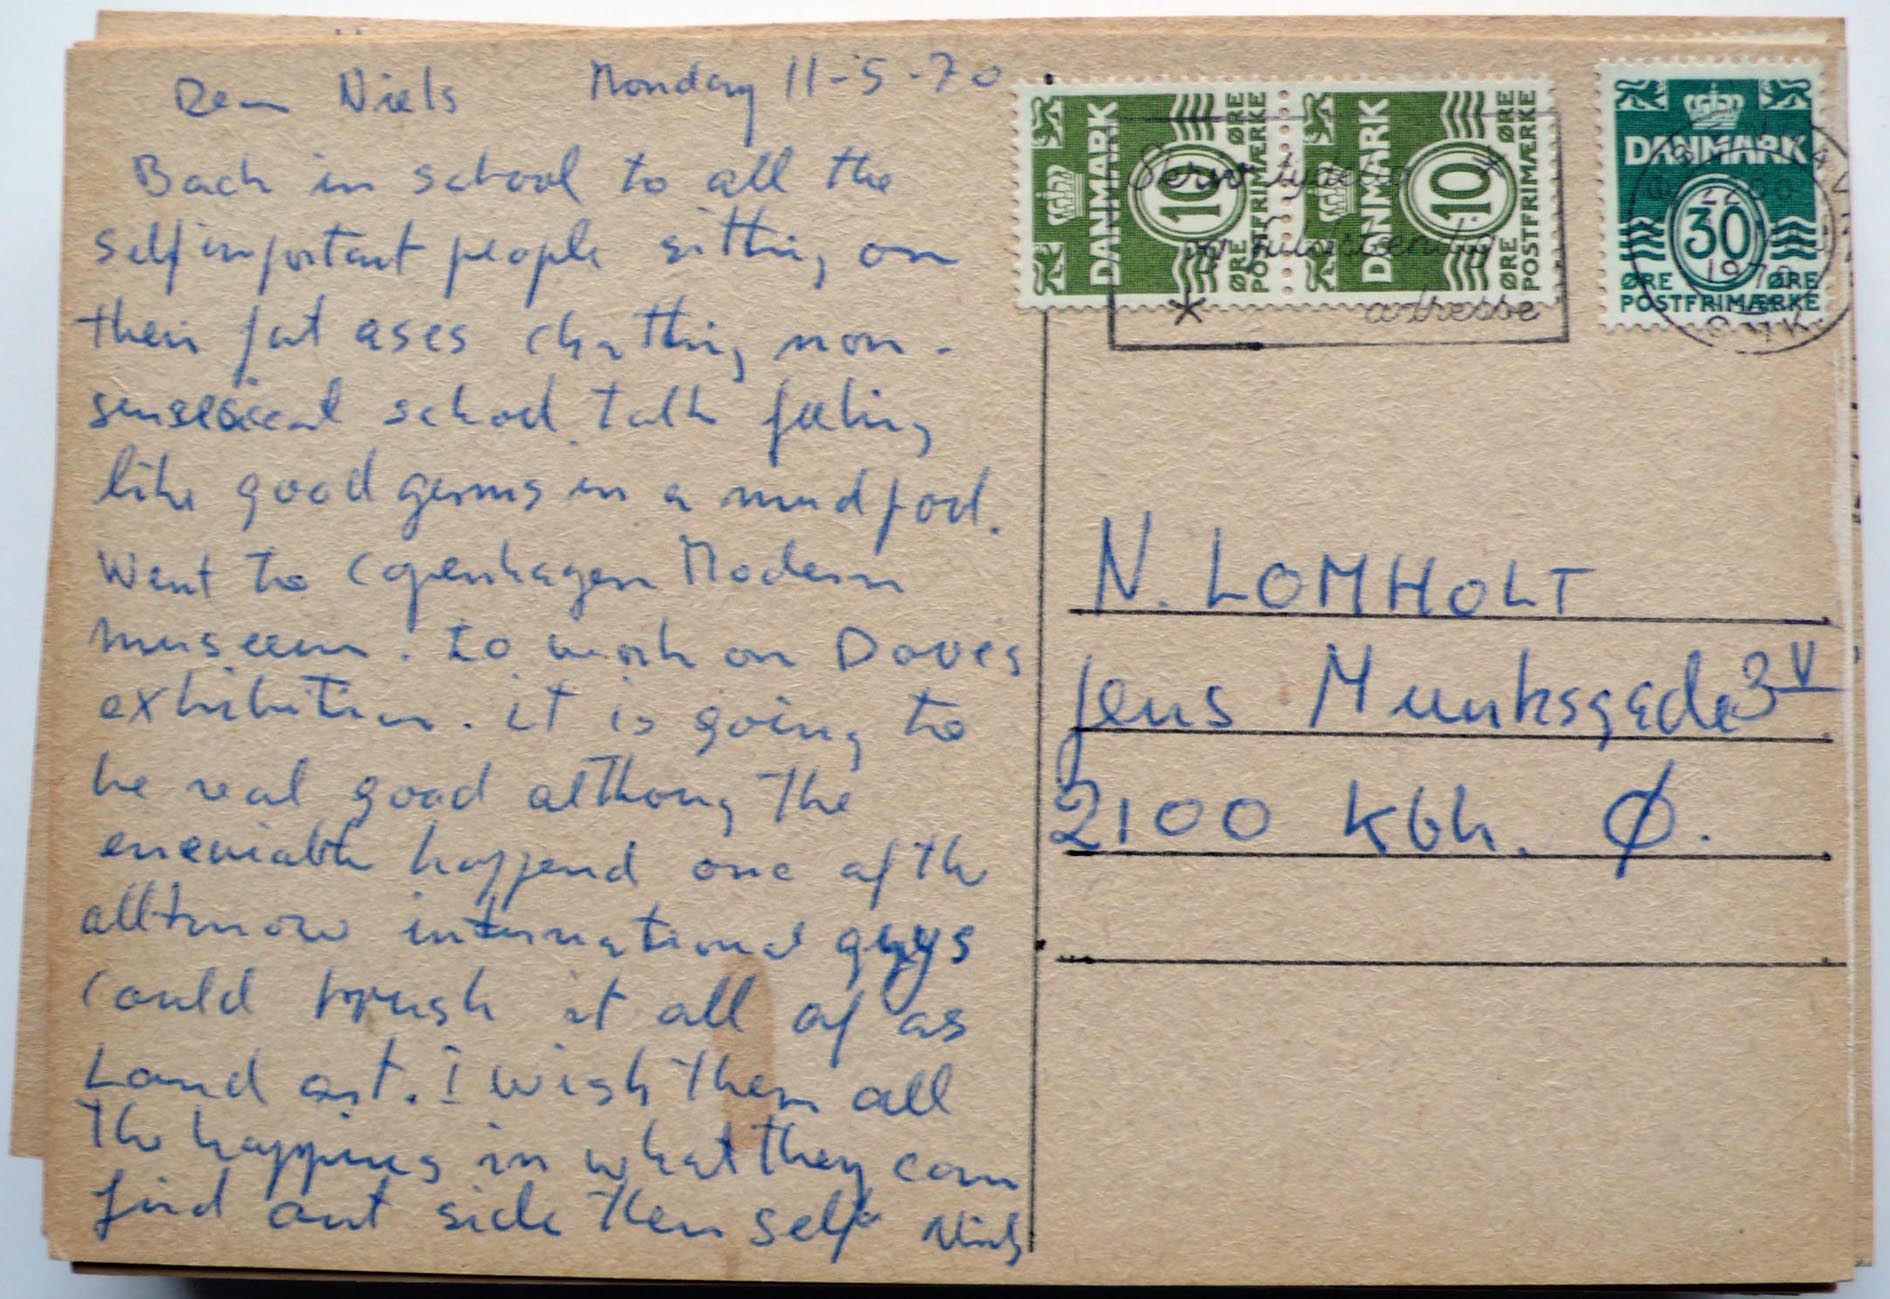 Dear Niels Monday 11-5-70
Back in school to all the
selfimportant people sitting on
their fat ases chatting non-
sensesical school talk feeling
like good germs in a mudpool.
Went to Copenhagen Modern
museem. to work on Daves
exhibition. it is going to
be real good althoug the
happend one of the
alltknow international guys
could brush it all of as
Land art. I wish them all
the happines in what they can
find out side them self Niels
DANMARK
10
ØRE
ØRE
POSTFRIMÆRKE
DANMARK
10
ØRE
ØRE
POSTFRIMÆRKE
DANMARK
30
ØRE ØRE
POSTFRIMÆRKE
Skriv tydelig
og fuldstændig
adresse
1970
N. LOMHOLT
Jens Munksgade 3 V
2100 Kbh. Ø.